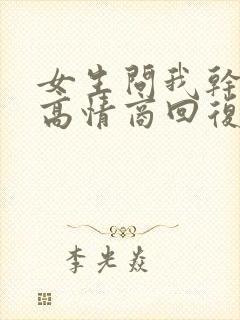 女生問我幹
高情商回復
李光焱